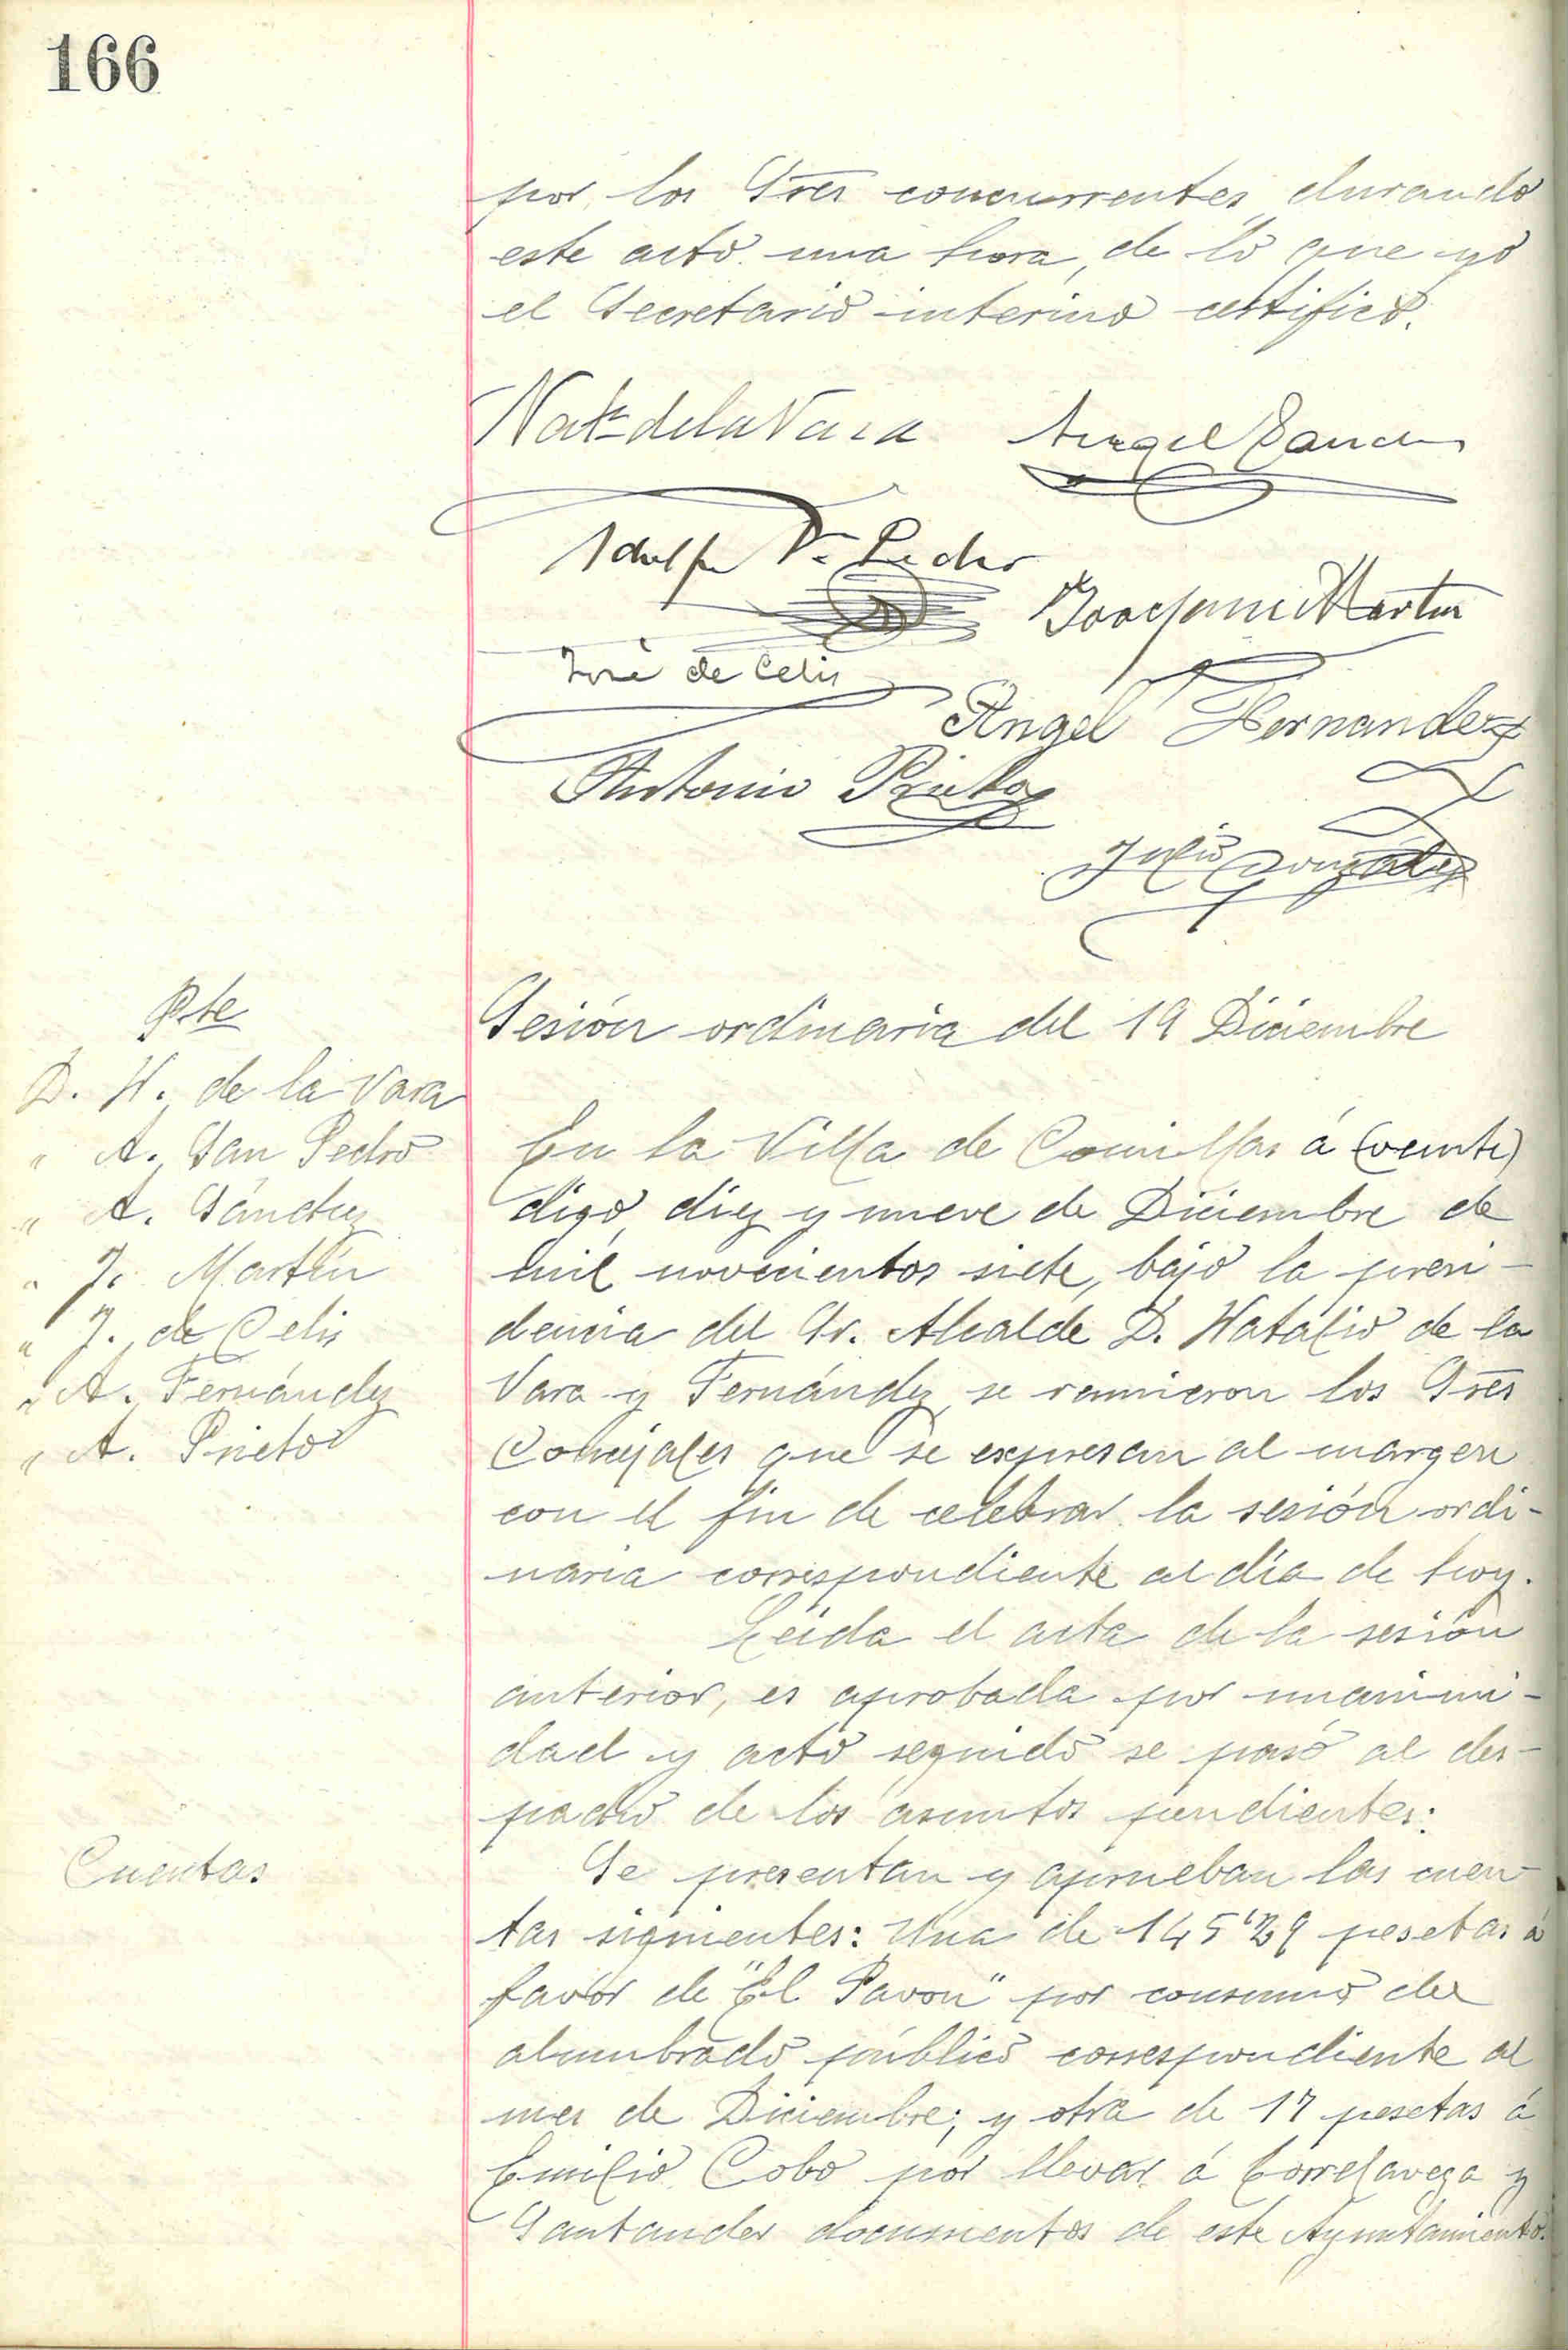 166
por los Sres concurrentes, durando
este acto una hora, de lo que yo
el Secretario interino certifico.
Nat. de la Vara Angel Sanchez
Adolfo V. Pedro
Joaquin Martin
José de Celis
Angel Hernandez
Antonio Prieto
Julio González
Pte
D. N. de la Vara
" A. San Pedro
" A. Sánchez
" J. Martín
" J. de Celis
" A. Fernández
" A. Prieto
Sesión ordinaria del 19 Diciembre
En la Villa de Comillas á (veinte)
digo, diez y nueve de Diciembre de
mil novecientos siete, bajo la presi-
dencia del Sr. Alcalde D. Natalio de la
Vara y Fernández, se reunieron los Sres
Concejales que se expresan al margen
con el fin de celebrar la sesión ordi-
naria correspondiente al día de hoy.
Leida el acta de la sesión
anterior, es aprobada por unanimi-
dad y acto seguido se pasó al des-
pacho de los asuntos pendientes:
Cuentas
Se presentan y aprueban las cuen-
tas siguientes: Una de 145'29 pesetas á
favor de "El Pavon" por consumo del
alumbrado público correspondiente al
mes de Diciembre; y otra de 17 pesetas á
Emilio Cobo por llevar á Torrelavega y
Santander documentos de este Ayuntamiento.